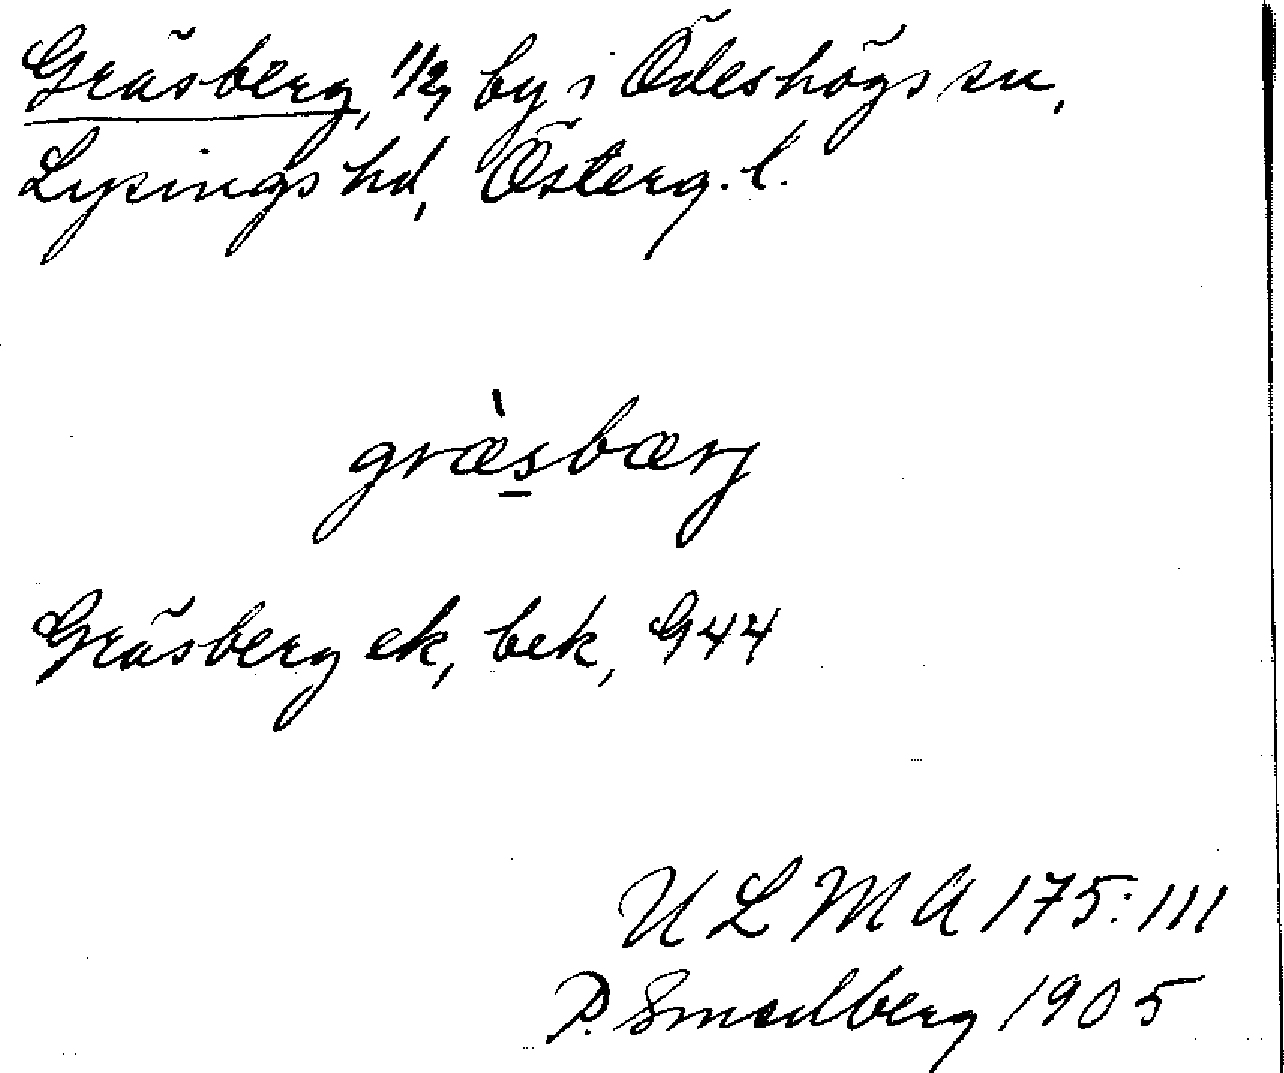 Gräsberg, 1/2, by i Ödeshögs sn,
Lysings hd, Österg. l.
græ̀s̱bærj
Gräsberg ek, bek, G44
ULMA 175:111
P. Smedberg 1905